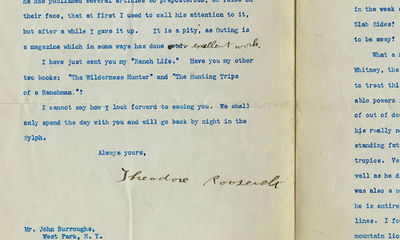 he has published several articles so preposterous, so false on
their face, that at first I used to call his attention to it,
but after a while I gave it up. It is a pity, as Outing is
a magazine which in some ways has done excellent work.
I have just sent you my "Ranch Life." Have you my other
two books: "The Wilderness Hunter" and "The Hunting Trips
of a Ranchman."?
I cannot say how I look forward to seeing you. We shall
only spend the day with you and will go back by night in the
Sylph.
Always yours,
Theodore Roosevelt
Mr. John Burroughs,
West Park, N. Y.
in the week o
Slab Sides!
to be away!
What a
Whitney, the
to treat thi
able powers
of out of doo
his really no
standing fat
tropics. Ve
well as he di
was also a
he is entire
lines. I fo
mountain lio